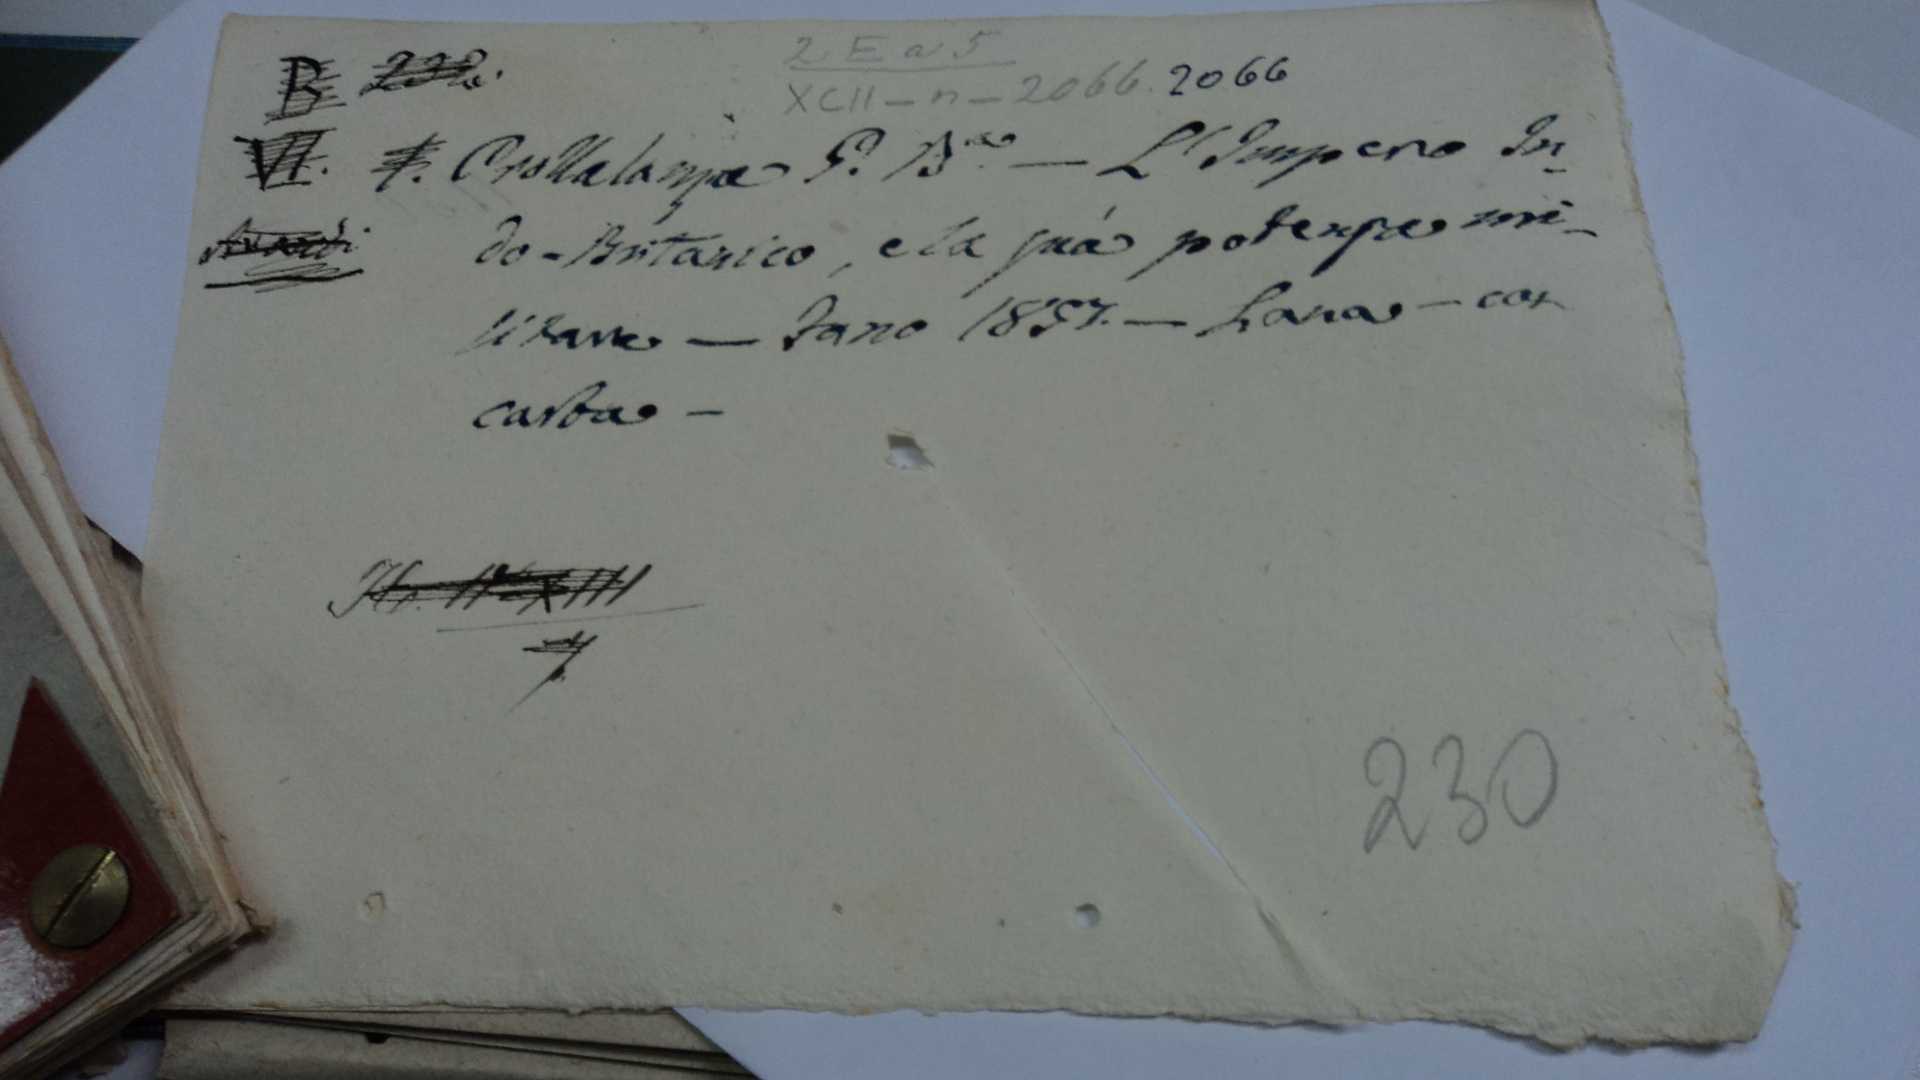 2 E a 5
B 230.
XCII - n - 2066. 2066
VI. 7. Crollalanza G. B.ta — L'Impero In-
do-Britanico, e la sua potenza mi-
litare — Fano 1857. — Lana - con
carta -
7.
230